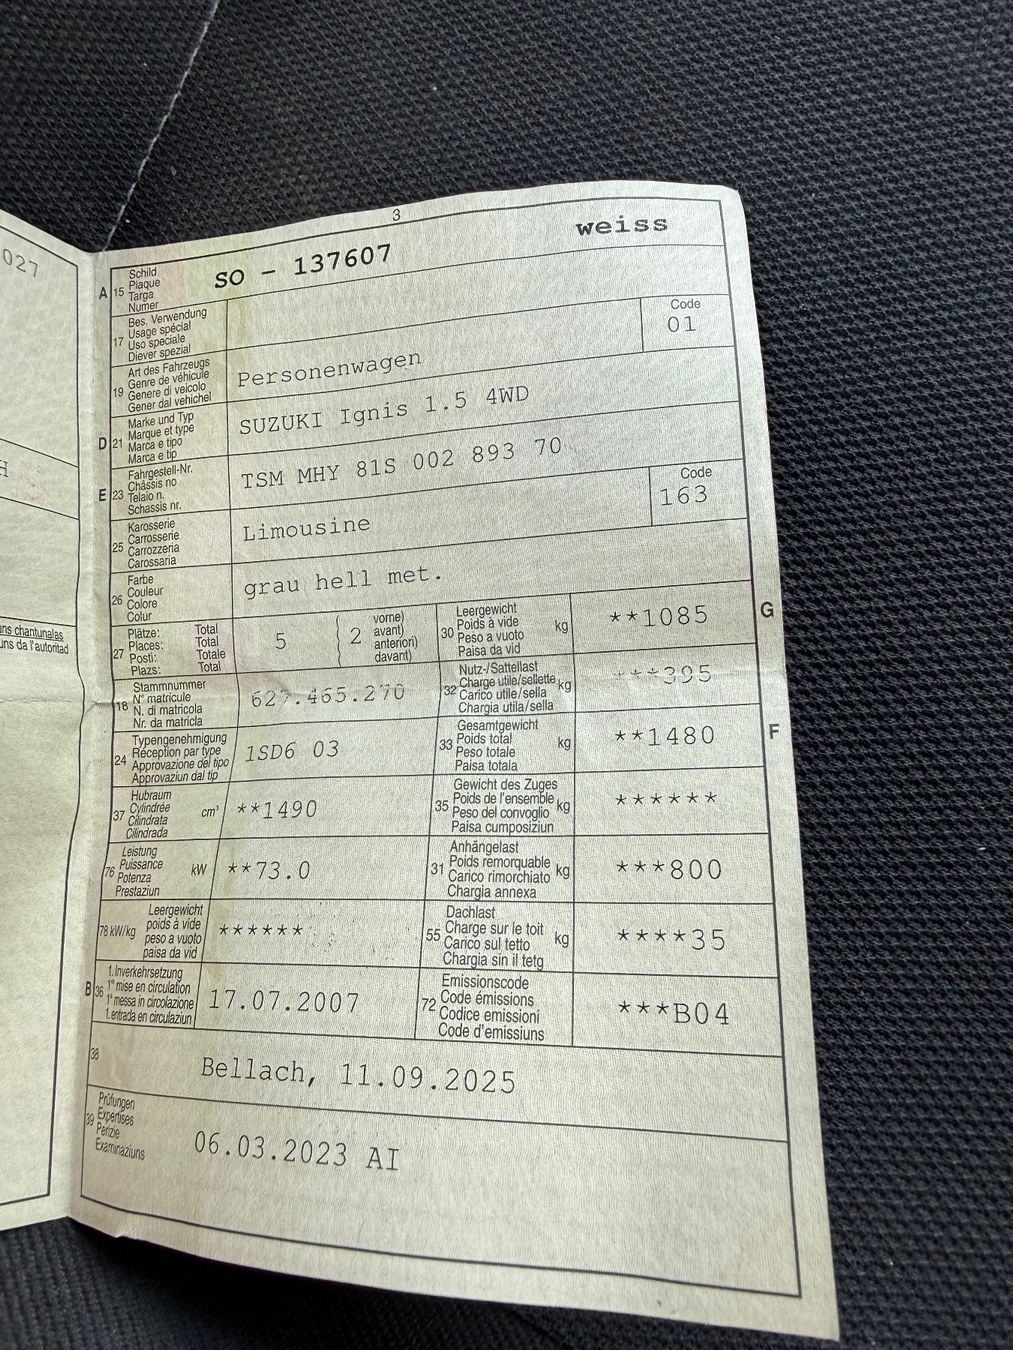 027
H
uns chantunalas
uns da l'autoritad
3
A 15 Schild
Plaque
Targa
Numer
SO - 137607 weiss
17 Bes. Verwendung
Usage spécial
Uso speciale
Diever spezial
19 Art des Fahrzeugs
Genre de véhicule
Genere di veicolo
Gener dal vehichel
Personenwagen
Code
01
D 21 Marke und Typ
Marque et type
Marca e tipo
Marca e tip
SUZUKI Ignis 1.5 4WD
E 23 Fahrgestell-Nr.
Châssis no
Telaio n.
Schassis nr.
TSM MHY 81S 002 893 70
25 Karosserie
Carrosserie
Carrozzeria
Carossaria
Limousine
Code
163
26 Farbe
Couleur
Colore
Colur
grau hell met.
27 Plätze: Total
Places: Total
Posti: Totale
Plazs: Total
5 ( 2 vorne)
avant)
anteriori)
davant)
30 Leergewicht
Poids à vide
Peso a vuoto
Paisa da vid
kg **1085 G
18 Stammnummer
N° matricule
N. di matricola
Nr. da matricla
627.465.270
32 Nutz-/Sattellast
Charge utile/sellette
Carico utile/sella
Chargia utila/sella
kg ***395
24 Typengenehmigung
Réception par type
Approvazione del tipo
Approvaziun dal tip
1SD6 03
33 Gesamtgewicht
Poids total
Peso totale
Paisa totala
kg **1480 F
37 Hubraum
Cylindrée
Cilindrata
Cilindrada
cm³ **1490
35 Gewicht des Zuges
Poids de l'ensemble
Peso del convoglio
Paisa cumposiziun
kg ******
76 Leistung
Puissance
Potenza
Prestaziun
kW **73.0
31 Anhängelast
Poids remorquable
Carico rimorchiato
Chargia annexa
kg ***800
78 kW/kg Leergewicht
poids à vide
peso a vuoto
paisa da vid
******
55 Dachlast
Charge sur le toit
Carico sul tetto
Chargia sin il tetg
kg ****35
B 36 1. Inverkehrsetzung
1re mise en circulation
1a messa in circolazione
1. entrada en circulaziun
17.07.2007
72 Emissionscode
Code émissions
Codice emissioni
Code d'emissiuns
***B04
38 Bellach, 11.09.2025
39 Prüfungen
Expertises
Perizie
Examinaziuns
06.03.2023 AI